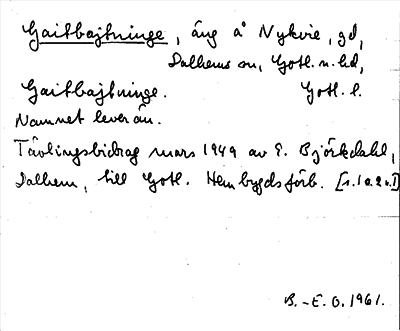 Gaitbajtninge, äng å Nykvie, gd,
Dalhems sn, Gotl. n. hd,
Gaitbajtninge. Gotl. l.
Namnet lever än.
Tävlingsbidrag mars 1949 av E. Björkdahl,
Dalhem, till Gotl. Hembygdsförb. [s. 1 a. 2 v.]
B.-E. O. 1961.